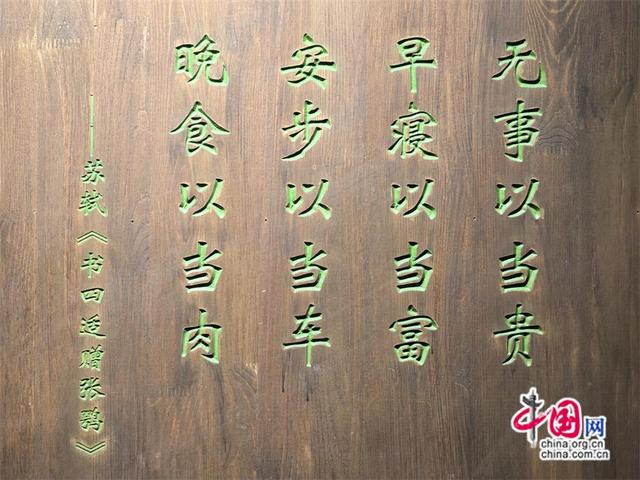 无事以当贵
早寝以当富
安步以当车
晚食以当肉
——苏轼《书四适赠张鹗》
中国网
china.org.cn
china.com.cn